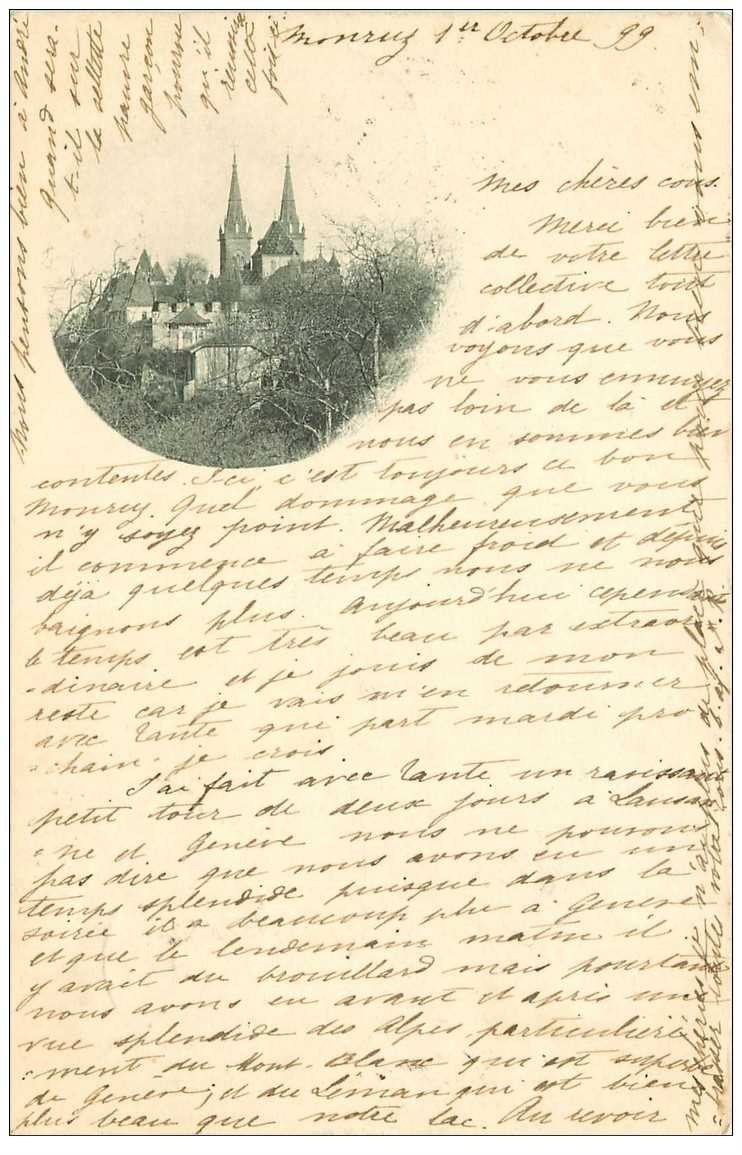 Monruz 1er Octobre 99
Mes chères cous.
Merci bien
de votre lettre
collective tout
d'abord. Nous
voyons que vous
ne vous ennuyez
pas loin de là et
nous en sommes bien
contentes. Ici c'est toujours ce bon
Monruz. Quel dommage que vous
n'y soyez point. Malheureusement
il commence à faire froid et depuis
déjà quelques temps nous ne nous
baignons plus. Aujourd'hui cependant
le temps est très beau par extraor
-dinaire et je jouis de mon
reste car je vais m'en retourner
avec Tante qui part mardi pro
-chain je crois
J'ai fait avec Tante un ravissant
petit tour de deux jours à Lausan
-ne et Genève nous ne pouvons
pas dire que nous avons eu un
temps splendide puisque dans la
soirée il a beaucoup plu à Genève
et que le lendemain matin il
y avait du brouillard mais pourtant
nous avons eu avant et après une
vue splendide des Alpes particulière
-ment du Mont-Blanc qui est superbe
de Genève; et du Léman qui est bien
plus beau que notre lac. Au revoir
mes chéries je n'ai plus de place que pour vous em
-brasser
Nous pensons bien à André
quand sera-
t-il sur
la sellette
pauvre
garçon
pourvu
qu'il
réussisse
cette
fois-ci